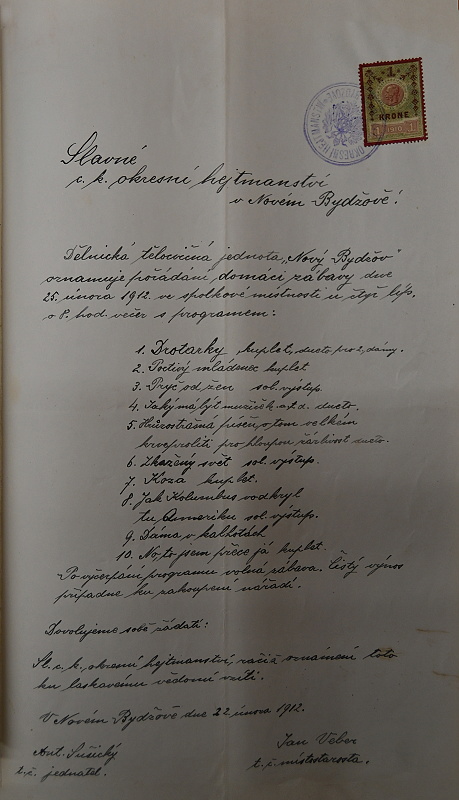 1
KRONE
1 1910 1
OKRESNÍ HEJTMANSTVÍ
Slavné
c. k. okresní hejtmanství
v Novém Bydžově!
Dělnická tělocvičná jednota „Nový Bydžov"
oznamuje pořádání domácí zábavy dne
25. února 1912. ve spolkové místnosti u čtyř lip.
o 8. hod. večer s programem:
1. Drotarky kuplet, dueto pro 2, dámy.
2. Poctivý mládenec kuplet
3. Pryč od žen sol. výstup.
4. Jaký má být mužíček a.t.d. dueto.
5. Hůrostrašná píseň o tom velikém
krveprolití pro hloupou žárlivost dueto.
6. Zkažený svět sol. výstup.
7. Koza kuplet.
8. Jak Kolumbus vodkryl
tu Ameriku sol. výstup.
9. Dáma v kalhotách
10. No, to jsem přece já kuplet.
Po vyčerpání programu volná zábava. Čistý výnos
připadne ku zakoupení nářadí.
Dovolujeme sobě žádati:
Sl. c. k. okresní hejtmanství, račiž oznámení toto
ku laskavému vědomí vzíti.
V Novém Bydžově dne 22 února 1912.
Ant. Sušický
t. č. jednatel.
Jan Veber
t. č. místostarosta.